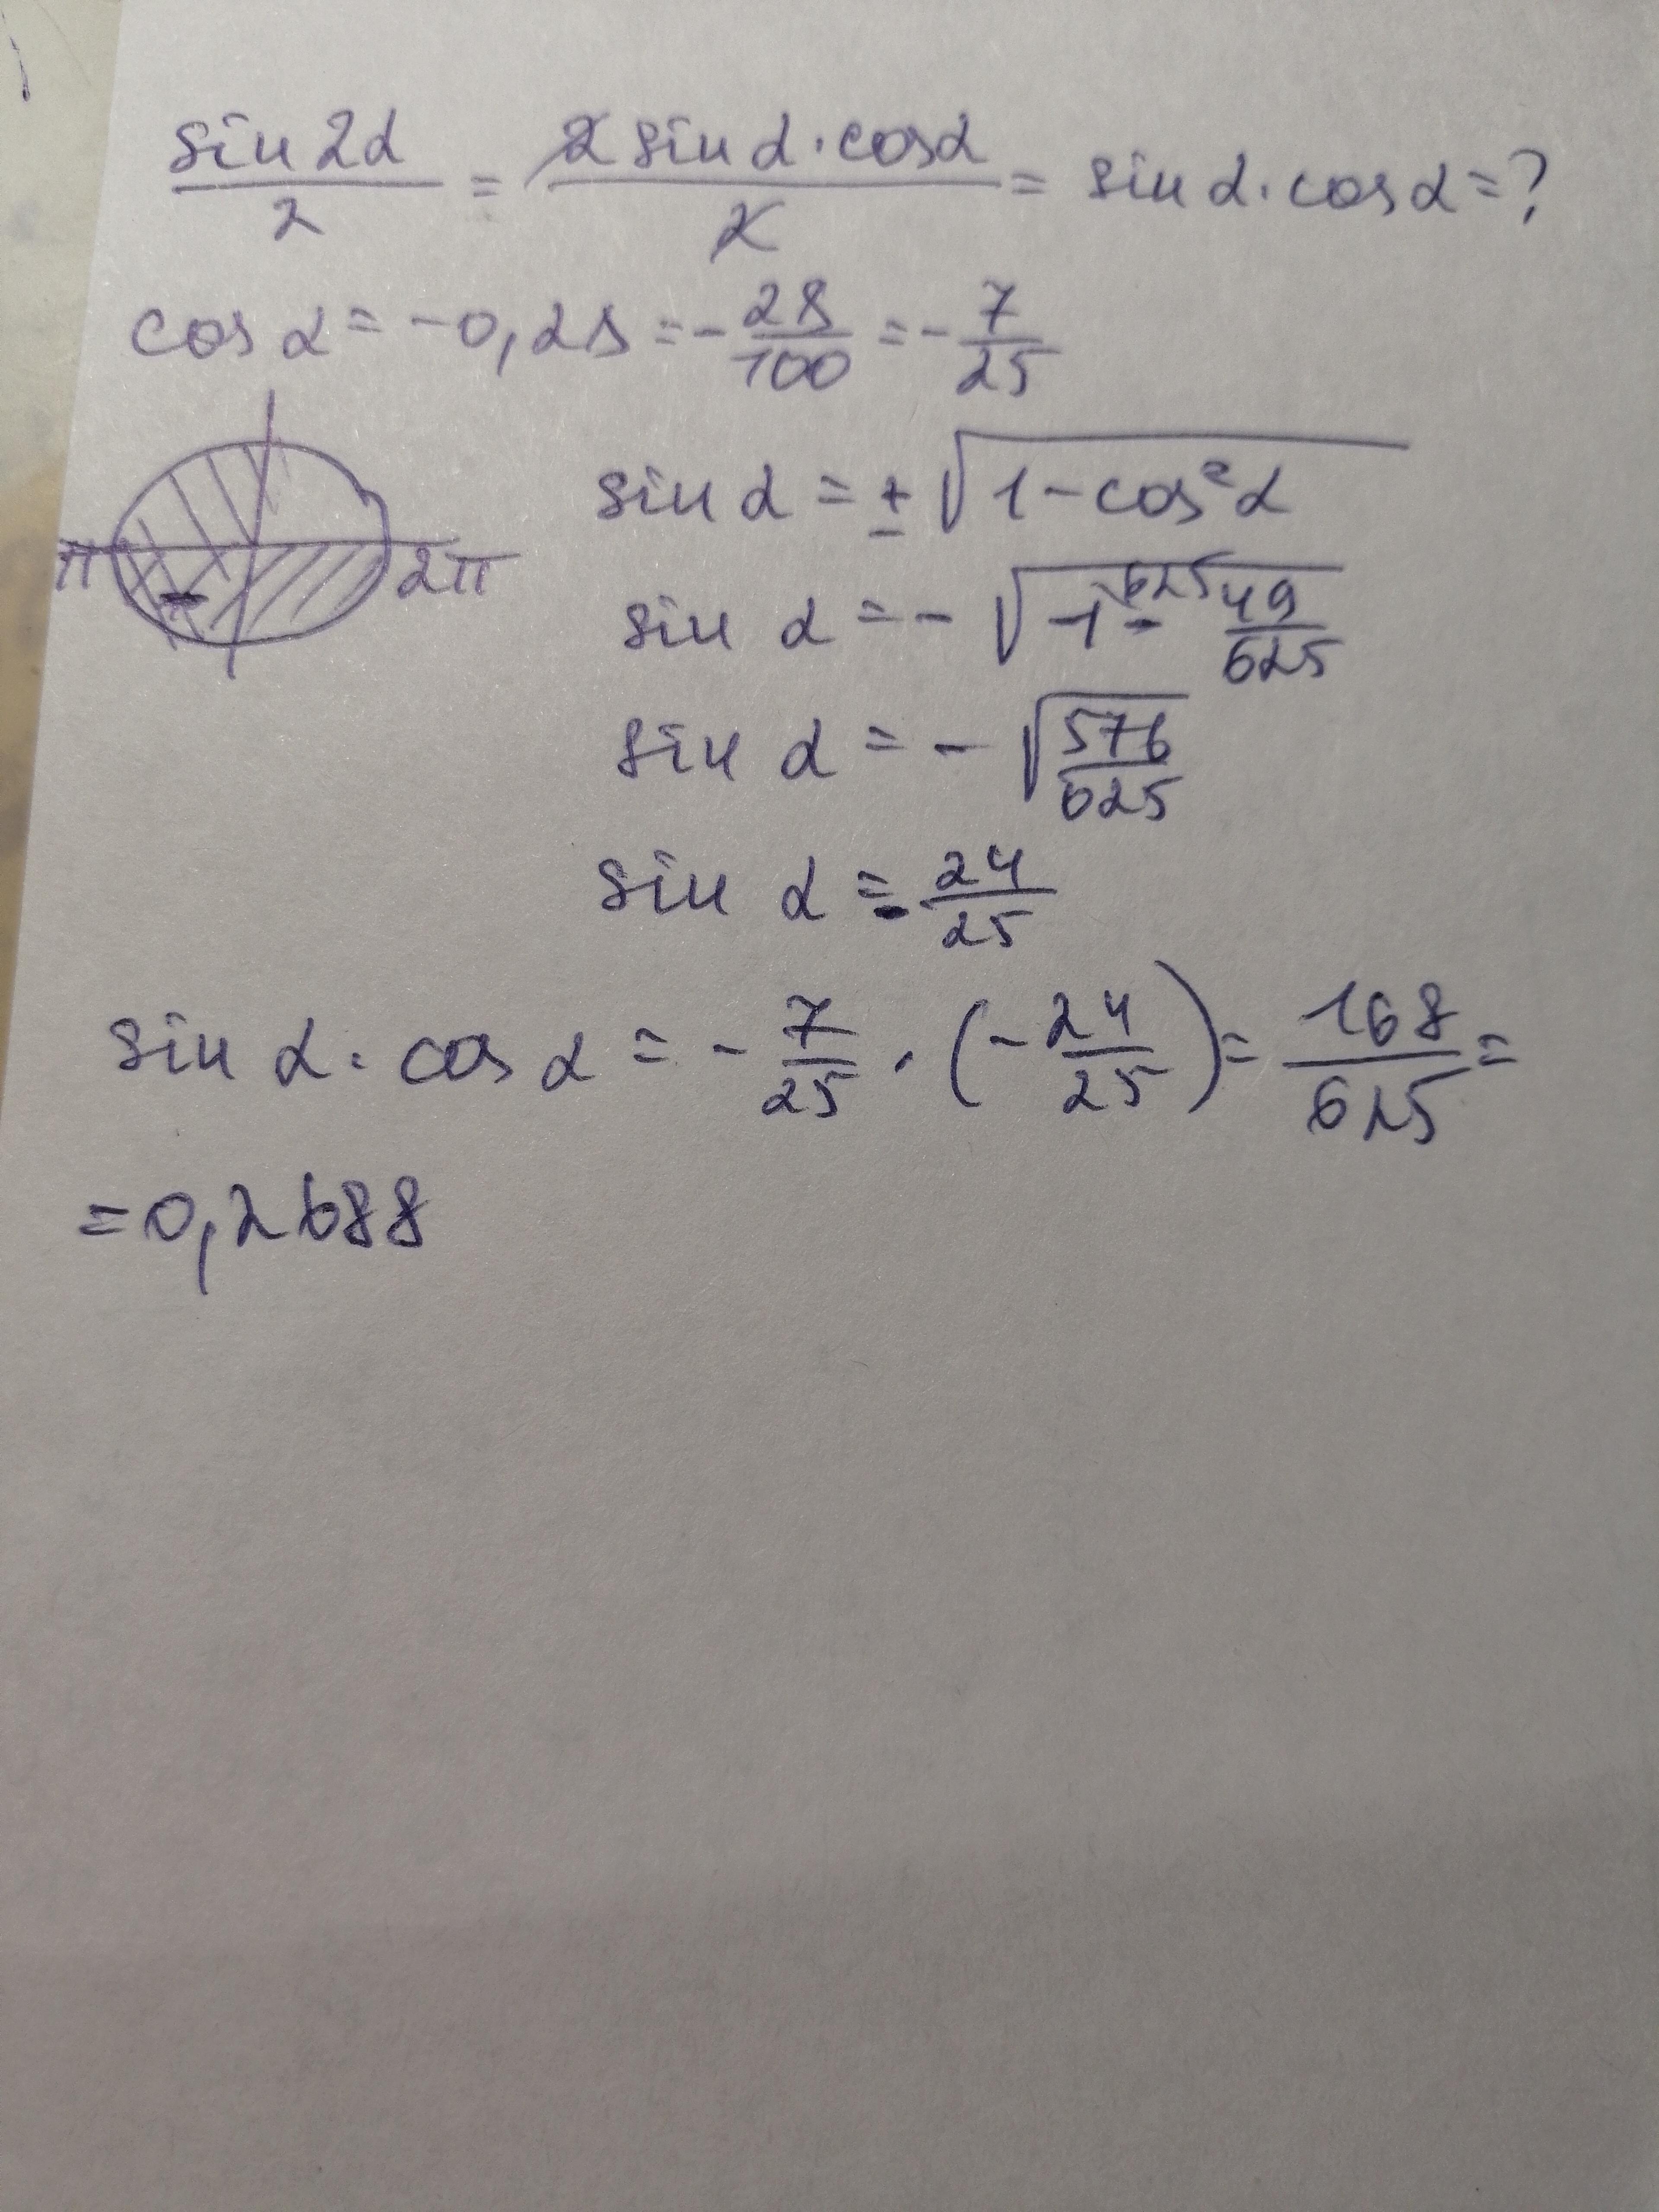 sin 2α / 2 = 2 sin α · cos α / 2 = sin α · cos α = ?
cos α = -0,28 = - 28/100 = - 7/25
π 2π
-
sin α = ± √(1 - cos² α)
sin α = - √(1^625 - 49/625)
sin α = - √(576/625)
sin α = - 24/25
sin α · cos α = - 7/25 · (- 24/25) = 168/625 =
= 0,2688